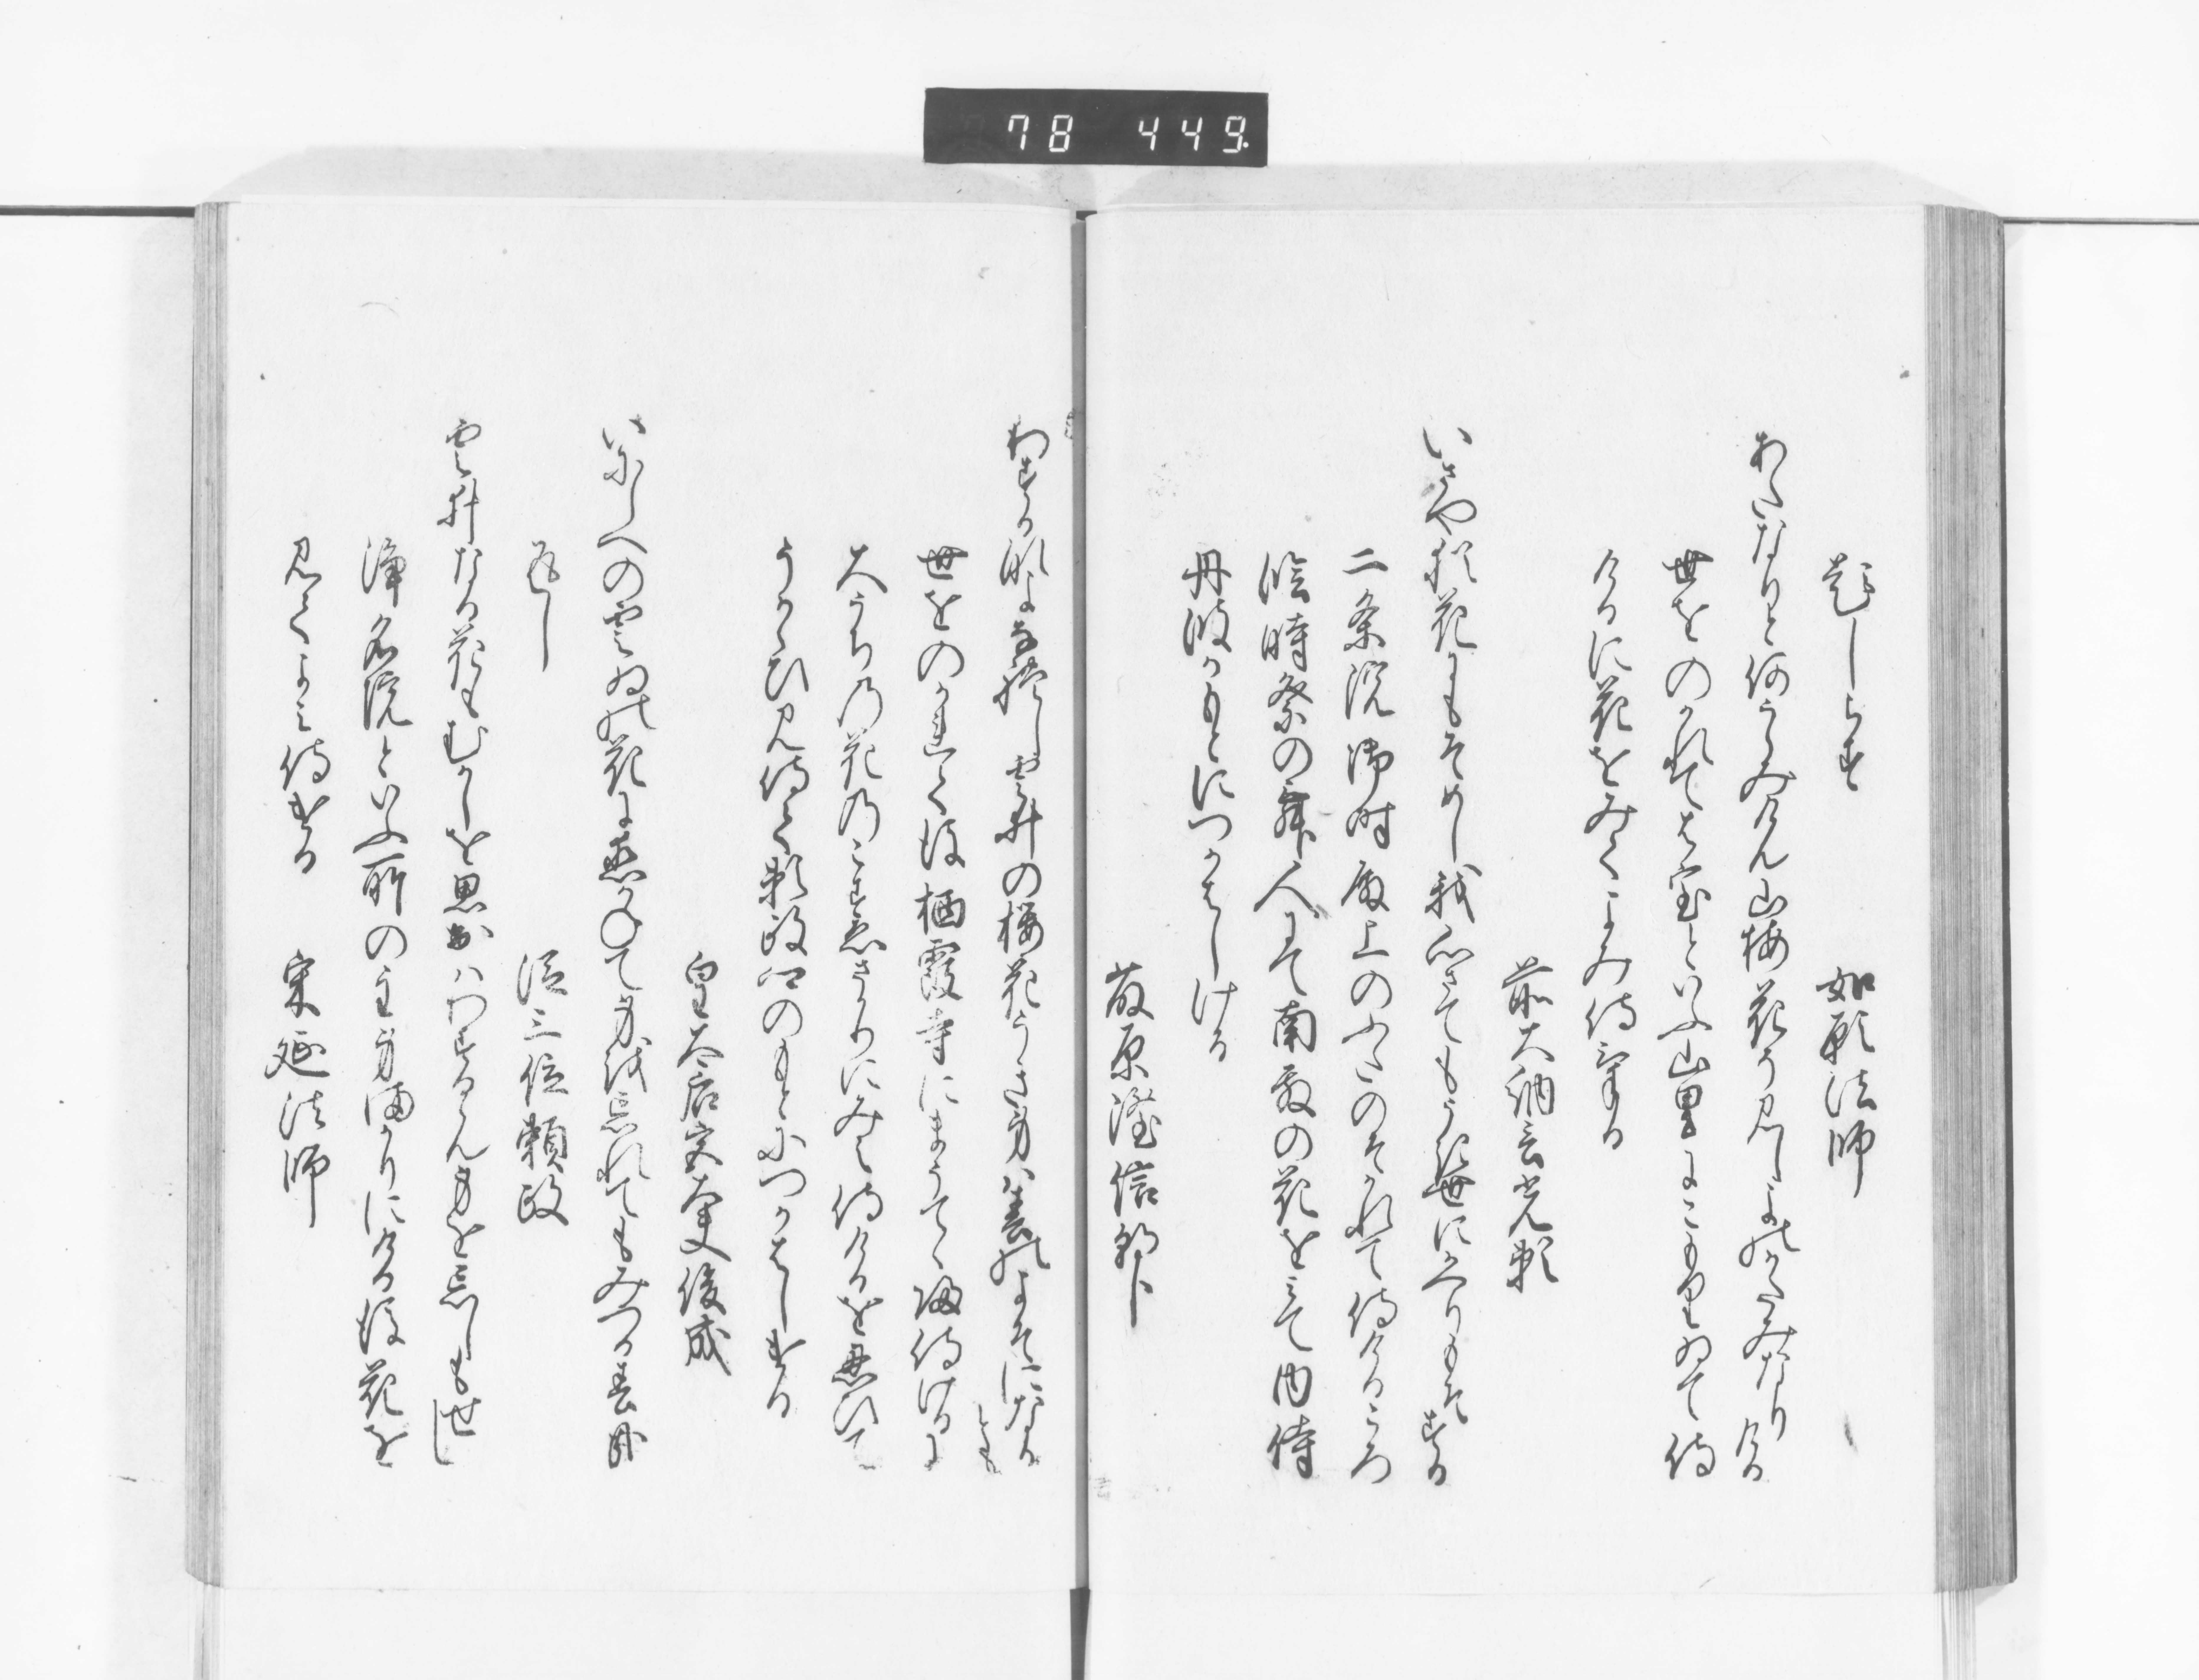 78 449
題しらす　　如願法師
あたなりと何うらみけん山桜花そ見しよのかたみなりける
世をのかれてを室といふ山里にこもりゐて侍
けるに花をみてよみ侍ける
前大納言光頼
いさやなを花にもそめし我心さてもうき世にかへりもそする
二条院御時殿上のふたのそかれて侍けるころ
臨時祭の舞人にて南殿の花を見て内侍
丹波かもとにつかはしける
藤原隆信朝臣
わするなよなれし雲井の桜花うき身は春のよそになるとも
世をのかれて後栖霞寺にまうてゝ帰侍けるに
大うちの花のこすゑさかりにみえ侍けるを忍ひて
うかゝひ見侍て頼政卿のもとにつかはしける
皇太后宮大夫俊成
いにしへの雲ゐの花に恋かねて身を忘れてもみつる春哉
返し　　従三位頼政
雲井なる花もむかしを思出はわするらん身を忘しもせし
浄名院といふ所の主身まかりにける後花を
見てよみ侍ける　　宋延法師